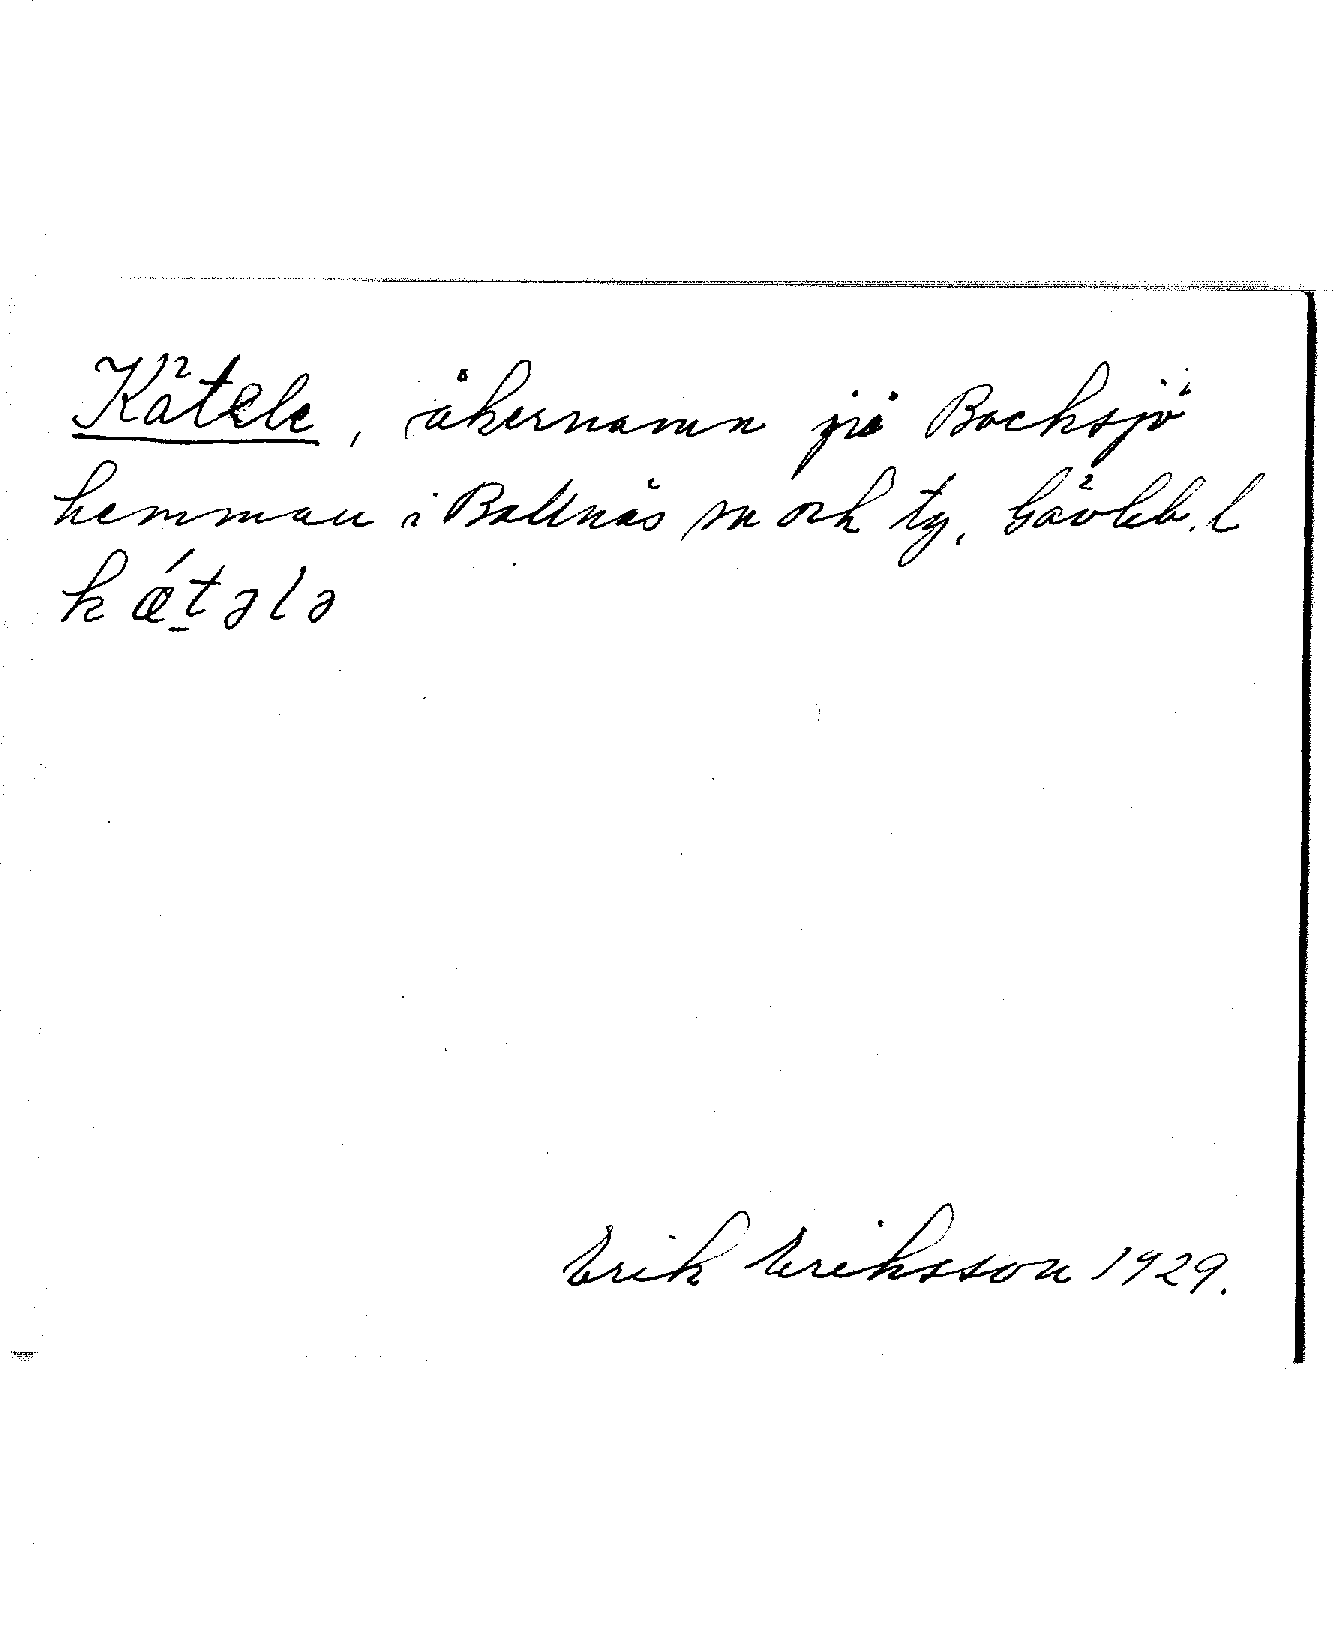 Kätele, åkernamn på Bocksjö
hemman i Bollnäs sn och tg, Gävleb. l
kǽt̠ələ
Erik Eriksson 1929.